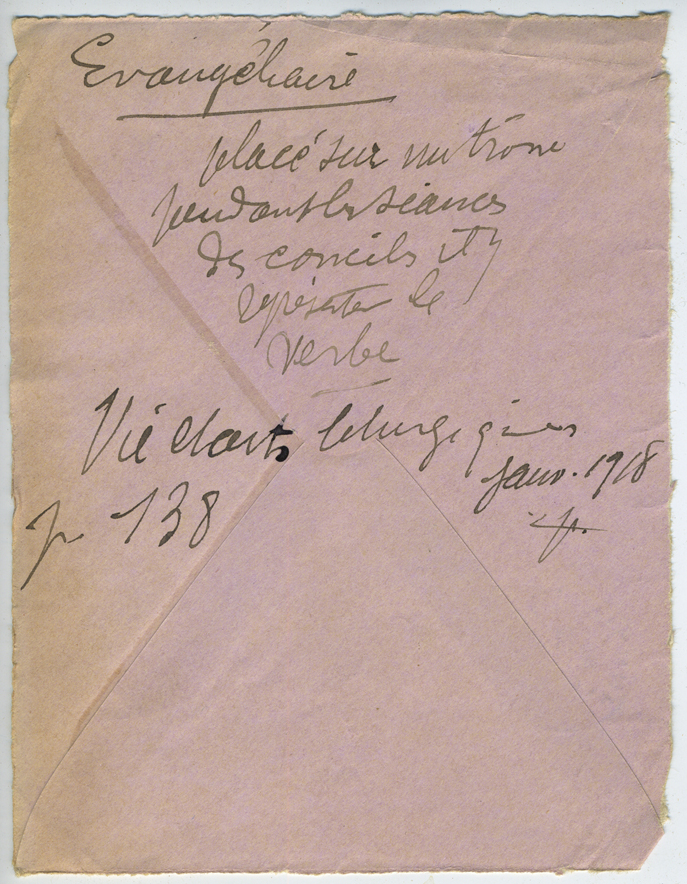 Evangéliaire
placé sur un trône
pendant les séances
des conciles il y
représente le
Verbe
Vie et arts liturgiques
janv. 1918
p. 138